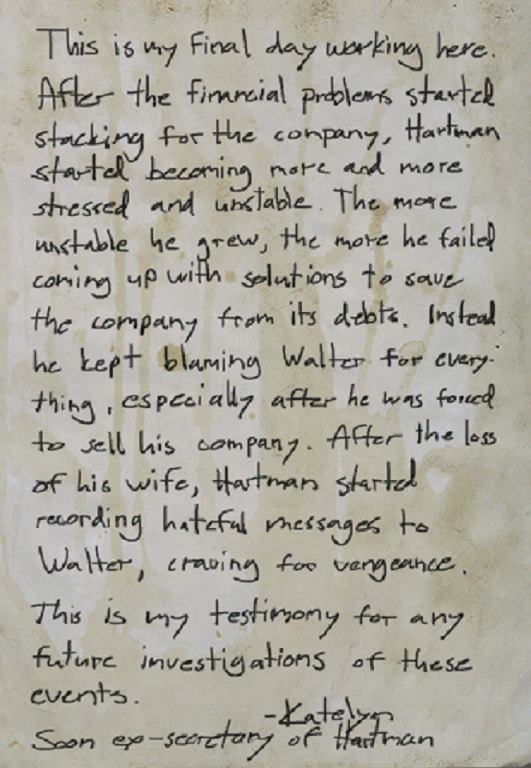 This is my final day working here.
After the financial problems started
stacking for the company, Hartman
started becoming more and more
stressed and unstable. The more
unstable he grew, the more he failed
coming up with solutions to save
the company from its debts. Instead
he kept blaming Walter for every-
thing, especially after he was forced
to sell his company. After the loss
of his wife, Hartman started
recording hateful messages to
Walter, craving for vengeance.
This is my testimony for any
future investigations of these
events.
-Katelyn
Soon ex-secretary of Hartman